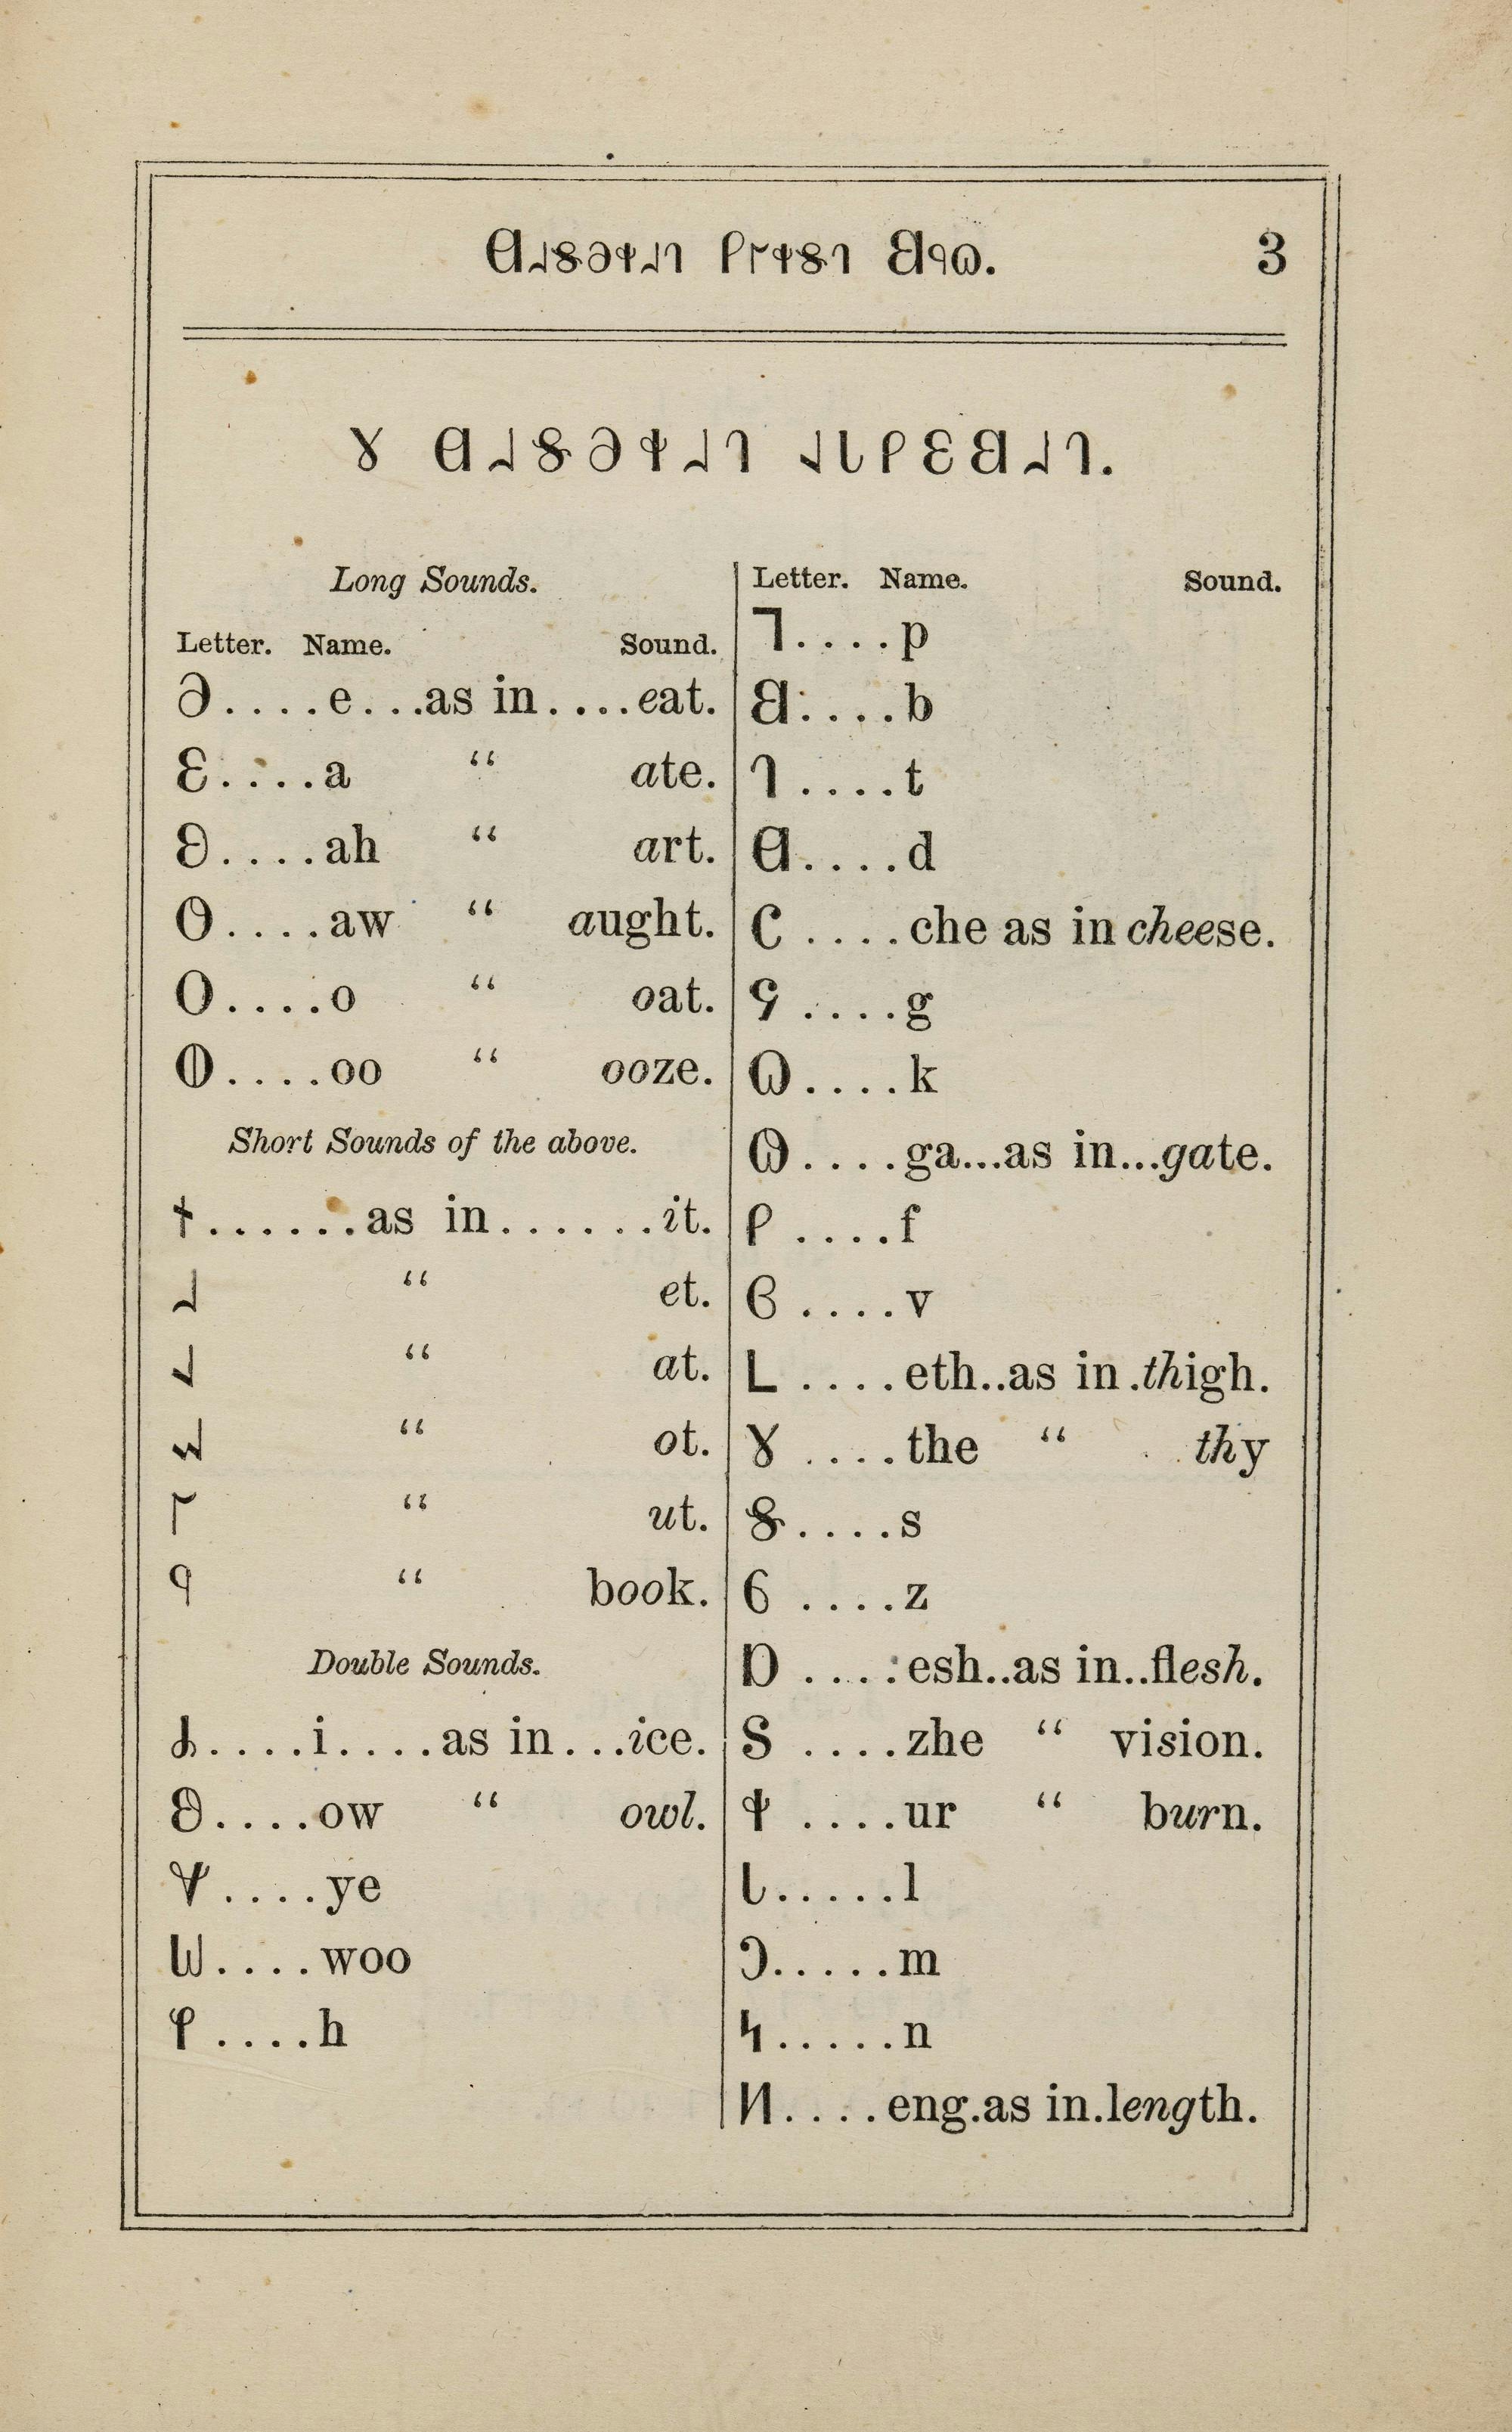 𐐔𐐯𐑅𐐨𐑉𐐯𐐻 𐐙𐐲𐑉𐑅𐐻 𐐒𐐳𐐿. 3
𐐜 𐐔𐐇𐐝𐐀𐐡𐐇𐐓 𐐈𐐢𐐙𐐁𐐒𐐇𐐓.
Long Sounds.
Letter. Name. Sound.
𐐀....e...as in....eat.
𐐁....a “ ate.
𐐂....ah “ art.
𐐃....aw “ aught.
𐐄....o “ oat.
𐐅....oo “ ooze.
Short Sounds of the above.
𐐆......as in.......it.
𐐇 “ et.
𐐈 “ at.
𐐉 “ ot.
𐐊 “ ut.
𐐋 “ book.
Double Sounds.
𐐌....i....as in...ice.
𐐍....ow “ owl.
𐐏....ye
𐐎....woo
𐐐....h
Letter. Name. Sound.
𐐑....p
𐐒....b
𐐓....t
𐐔....d
𐐕....che as in cheese.
𐐖....g
𐐗....k
𐐘....ga...as in...gate.
𐐙....f
𐐚....v
𐐛....eth..as in.thigh.
𐐜....the “ thy
𐐝....s
𐐞....z
𐐟....esh..as in..flesh.
𐐠....zhe “ vision.
𐐡....ur “ burn.
𐐢.....l
𐐣.....m
𐐤.....n
𐐥....eng.as in.length.